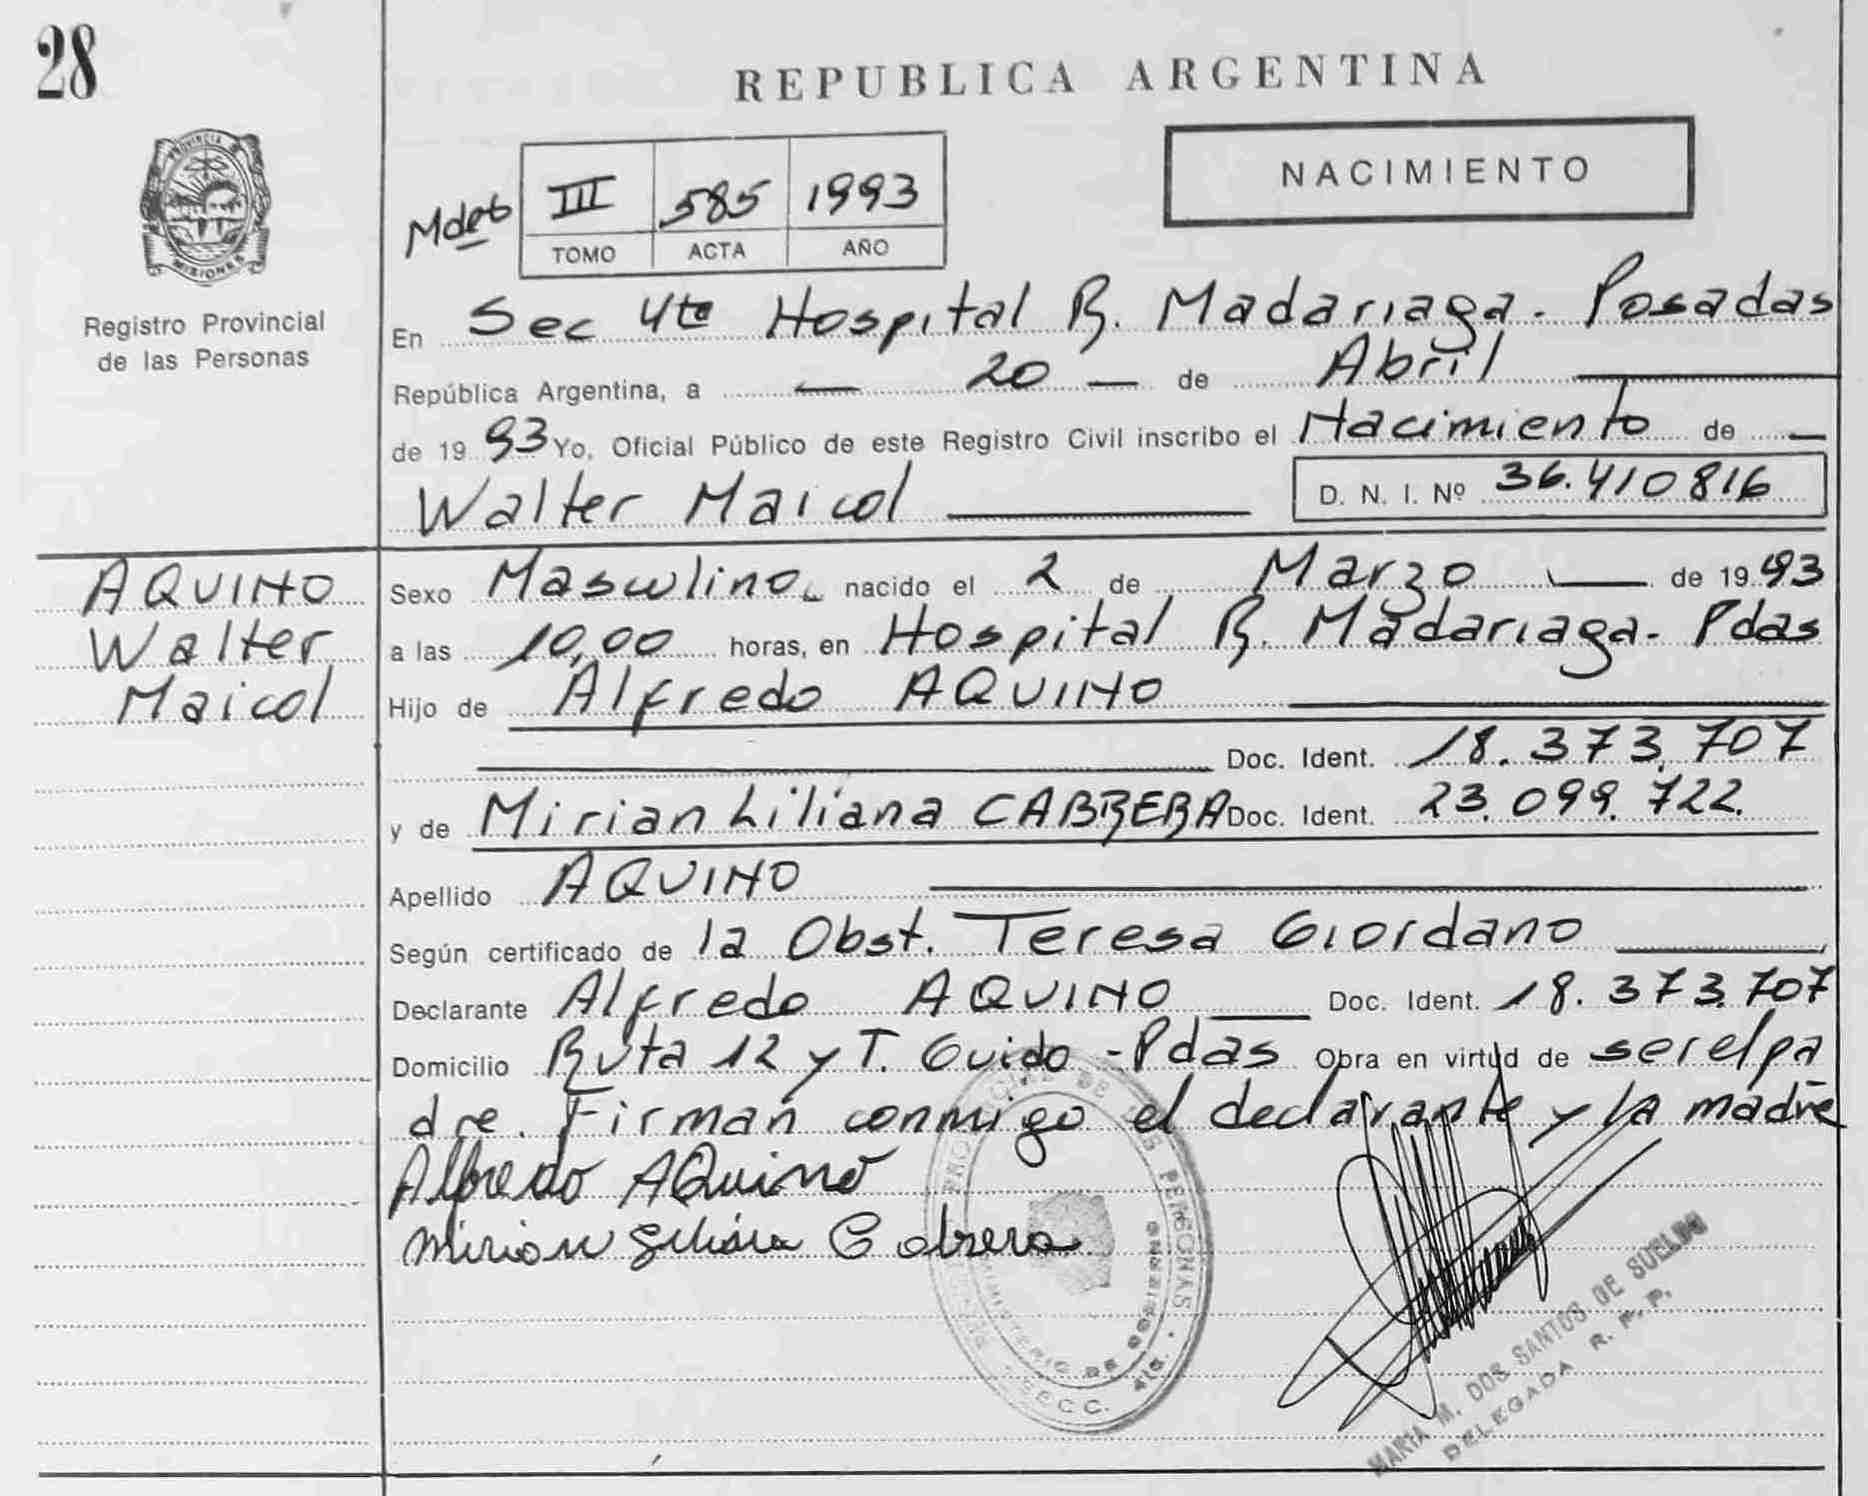 28
REPUBLICA ARGENTINA
NACIMIENTO
III 585 1993
TOMO ACTA AÑO
PROVINCIA DE
MISIONES
Registro Provincial
de las Personas
En Sec 4ta Hospital R. Madariaga - Posadas
República Argentina, a — 20 — de Abril
de 1993 Yo, Oficial Público de este Registro Civil inscribo el Nacimiento de —
Walter Maicol D. N. I. Nº 36.410816
AQUINO
Walter
Maicol
Sexo Masculino nacido el 2 de Marzo — de 1993
a las 10,00 horas, en Hospital R. Madariaga - Pdas
Hijo de Alfredo AQUINO
Doc. Ident. 18.373.707
y de Mirian Liliana CABRERA Doc. Ident. 23.099.722.
Apellido AQUINO
Según certificado de la Obst. Teresa Giordano
Declarante Alfredo AQUINO Doc. Ident. 18.373.707
Domicilio Ruta 12 y T. Guido - Pdas Obra en virtud de ser el pa
dre. Firman conmigo el declarante y la madre
Alfredo AQuino
Mirian Liliana Cabrera
DE LAS PERSONAS
MINISTERIO DE GOBIERNO
MARIA M. DOS SANTOS DE SUELDO
DELEGADA R. P. P.